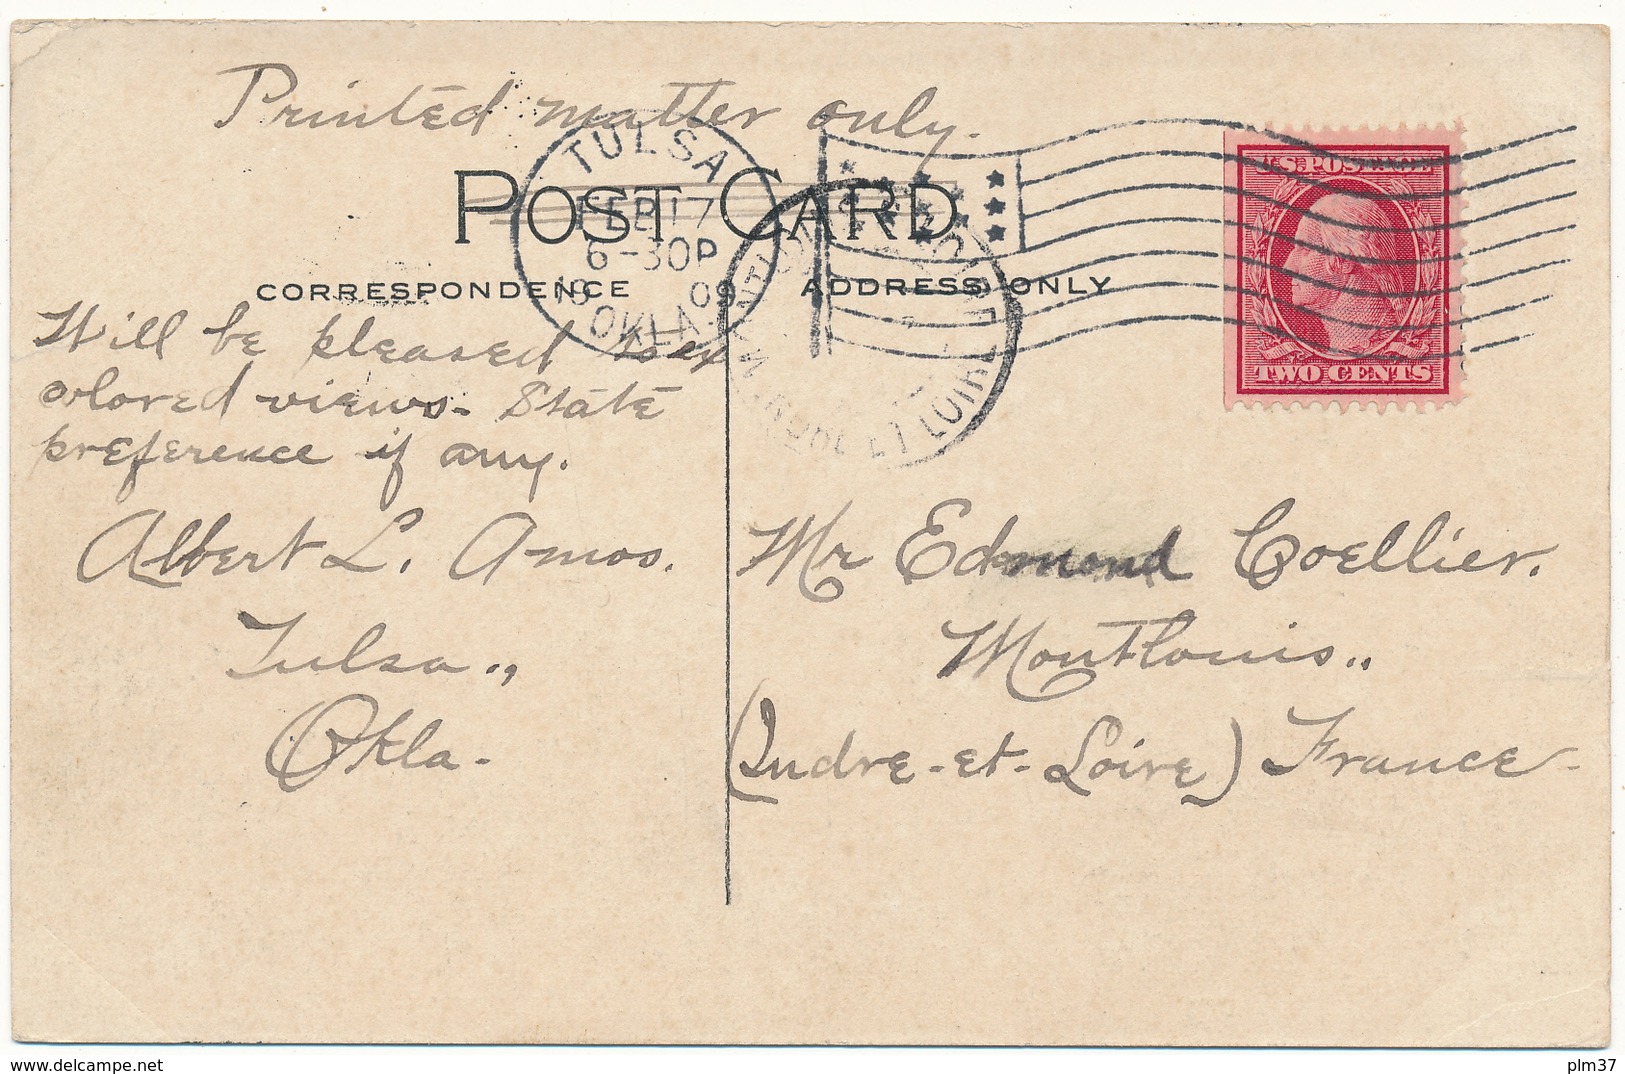 Printed matter only.
TULSA
FEB 17
6-30P
19 09
OKLA.
POST CARD
CORRESPONDENCE
ADDRESS ONLY
U.S. POSTAGE
TWO CENTS
INDRE ET LOIRE
Will be pleased to ex
colored views. State
preference if any.
Albert L. Amos.
Tulsa.,
Okla.
Mr Edmond Coellier.
Montlouis.,
(Indre-et-Loire) France
www.delcampe.net
plm37